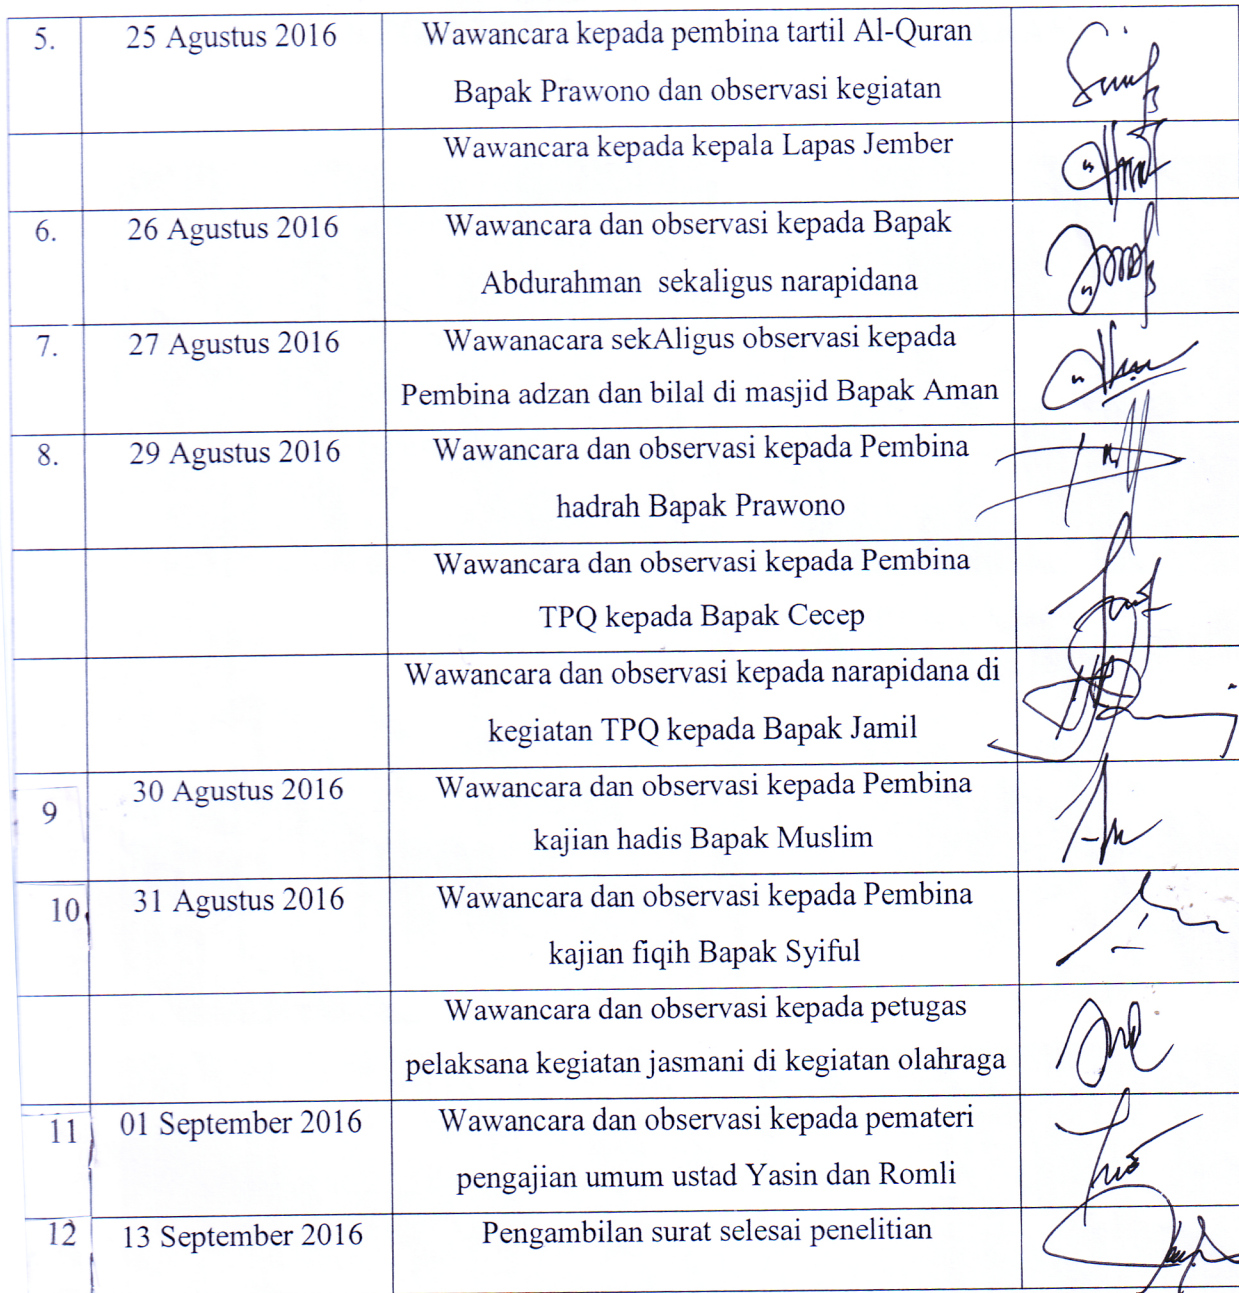 5. 25 Agustus 2016 Wawancara kepada pembina tartil Al-Quran
Bapak Prawono dan observasi kegiatan
Wawancara kepada kepala Lapas Jember
6. 26 Agustus 2016 Wawancara dan observasi kepada Bapak
Abdurahman sekaligus narapidana
7. 27 Agustus 2016 Wawanacara sekAligus observasi kepada
Pembina adzan dan bilal di masjid Bapak Aman
8. 29 Agustus 2016 Wawancara dan observasi kepada Pembina
hadrah Bapak Prawono
Wawancara dan observasi kepada Pembina
TPQ kepada Bapak Cecep
Wawancara dan observasi kepada narapidana di
kegiatan TPQ kepada Bapak Jamil
9 30 Agustus 2016 Wawancara dan observasi kepada Pembina
kajian hadis Bapak Muslim
10 31 Agustus 2016 Wawancara dan observasi kepada Pembina
kajian fiqih Bapak Syiful
Wawancara dan observasi kepada petugas
pelaksana kegiatan jasmani di kegiatan olahraga
11 01 September 2016 Wawancara dan observasi kepada pemateri
pengajian umum ustad Yasin dan Romli
12 13 September 2016 Pengambilan surat selesai penelitian